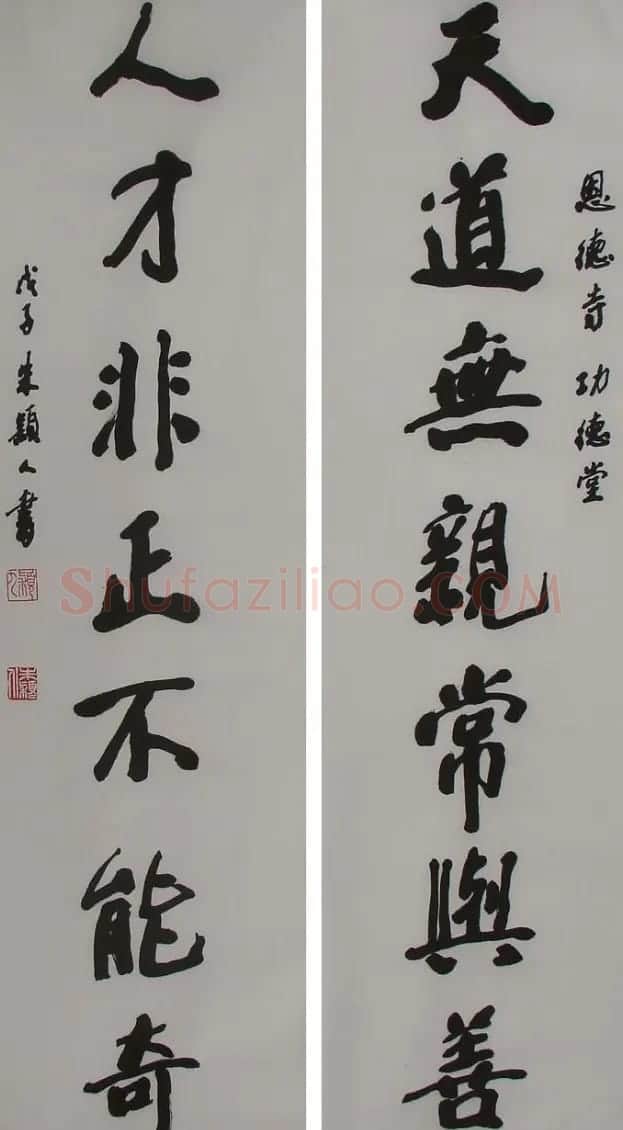 恩德寺 功德堂
天道無親常與善
人才非正不能奇
戊子朱穎人書
Shufaziliao.COM